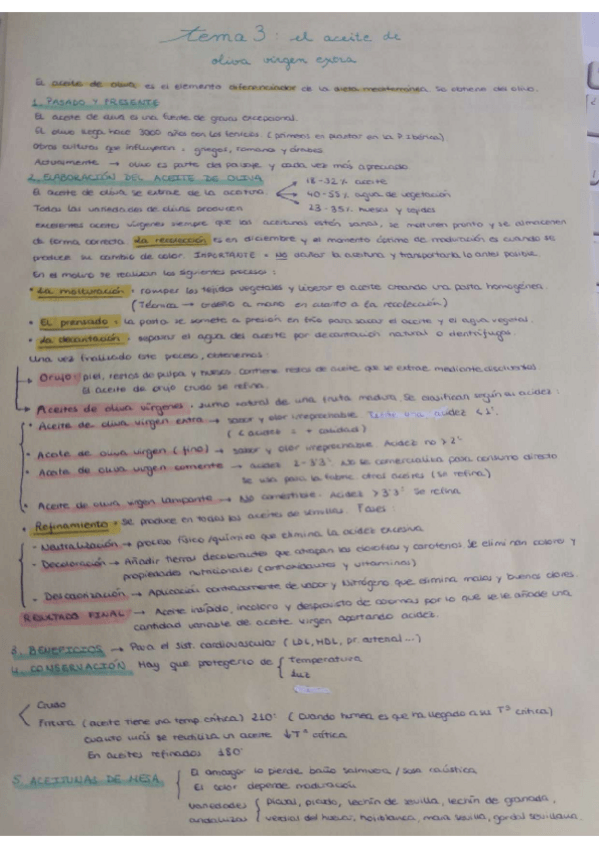 tema 3: el aceite de
oliva virgen extra
El aceite de oliva es el elemento diferenciador de la dieta mediterránea. Se obtiene del olivo.
1. PASADO Y PRESENTE
El aceite de oliva es una fuente de grasa excepcional.
El olivo llega hace 3000 años con los fenicios. (primeros en plantar en la P. Ibérica)
Otras culturas que influyeron: griegos, romanos y árabes
Actualmente → olivo es parte del paisaje y cada vez más apreciado
2. ELABORACIÓN DEL ACEITE DE OLIVA
18-32% aceite
El aceite de oliva se extrae de la aceituna
40-55% agua de vegetación
Todas las variedades de olivas producen
23-35% huesos y tejidos
excelentes aceites vírgenes siempre que las aceitunas estén sanas, se maduren pronto y se almacenen
de forma correcta. La recolección es en diciembre y el momento óptimo de maduración es cuando se
produce su cambio de color. IMPORTANTE: NO dañar la aceituna y transportarla lo antes posible.
En el molino se realizan los siguientes procesos:
• La molturación: romper los tejidos vegetales y liberar el aceite creando una pasta homogénea.
(Técnica → ordeño a mano en cuanto a la recolección)
• El prensado: la pasta se somete a presión en frío para sacar el aceite y el agua vegetal.
• La decantación: separar el agua del aceite por decantación natural o centrífugas.
Una vez finalizado este proceso, obtenemos:
→ Orujo: piel, restos de pulpa y huesos. Contiene restos de aceite que se extrae mediante disolventes
El aceite de orujo crudo se refina.
→ Aceites de oliva vírgenes: zumo natural de una fruta madura. Se clasifican según su acidez:
• Aceite de oliva virgen extra → sabor y olor irreprochable. acidez < 1°.
( < acidez = + calidad)
• Aceite de oliva virgen (fino) → sabor y olor irreprochable. Acidez no > 2°
• Aceite de oliva virgen corriente → acidez 2-3'3° No se comercializa para consumo directo
Se usa para la fabric. otros aceites (se refina)
• Aceite de oliva virgen lampante → No comestible. Acidez > 3'3° Se refina
• Refinamiento: se produce en todos los aceites de semillas. Fases:
- Neutralización → proceso físico/químico que elimina la acidez excesiva
- Decoloración → Añadir tierras decolorantes que atrapan las clorofilas y carotenos. Se eliminan colores y
propiedades nutricionales (antioxidantes y vitaminas)
- Desodorización → Aplicación contracorriente de vapor y nitrógeno que elimina malos y buenos olores.
RESULTADO FINAL → Aceite insípido, incoloro y desprovisto de aromas por lo que se le añade una
cantidad variable de aceite virgen aportando acidez.
3. BENEFICIOS → Para el sist. cardiovascular (LDL, HDL, Pr. arterial...)
4. CONSERVACIÓN Hay que protegerlo de { Temperatura
Luz
Crudo
Fritura (aceite tiene una temp crítica) 210° (Cuando humea es que ha llegado a su Tª crítica)
Cuanto más se reutiliza un aceite ↓Tª crítica
En aceites refinados 180°
5. ACEITUNAS DE MESA
El amargor lo pierde baño salmuera / sosa caústica
El color depende maduración
Variedades andaluzas { picual, picudo, lechín de sevilla, lechín de granada,
verdial del huevar, hojiblanca, sevilla, gordal sevillana.